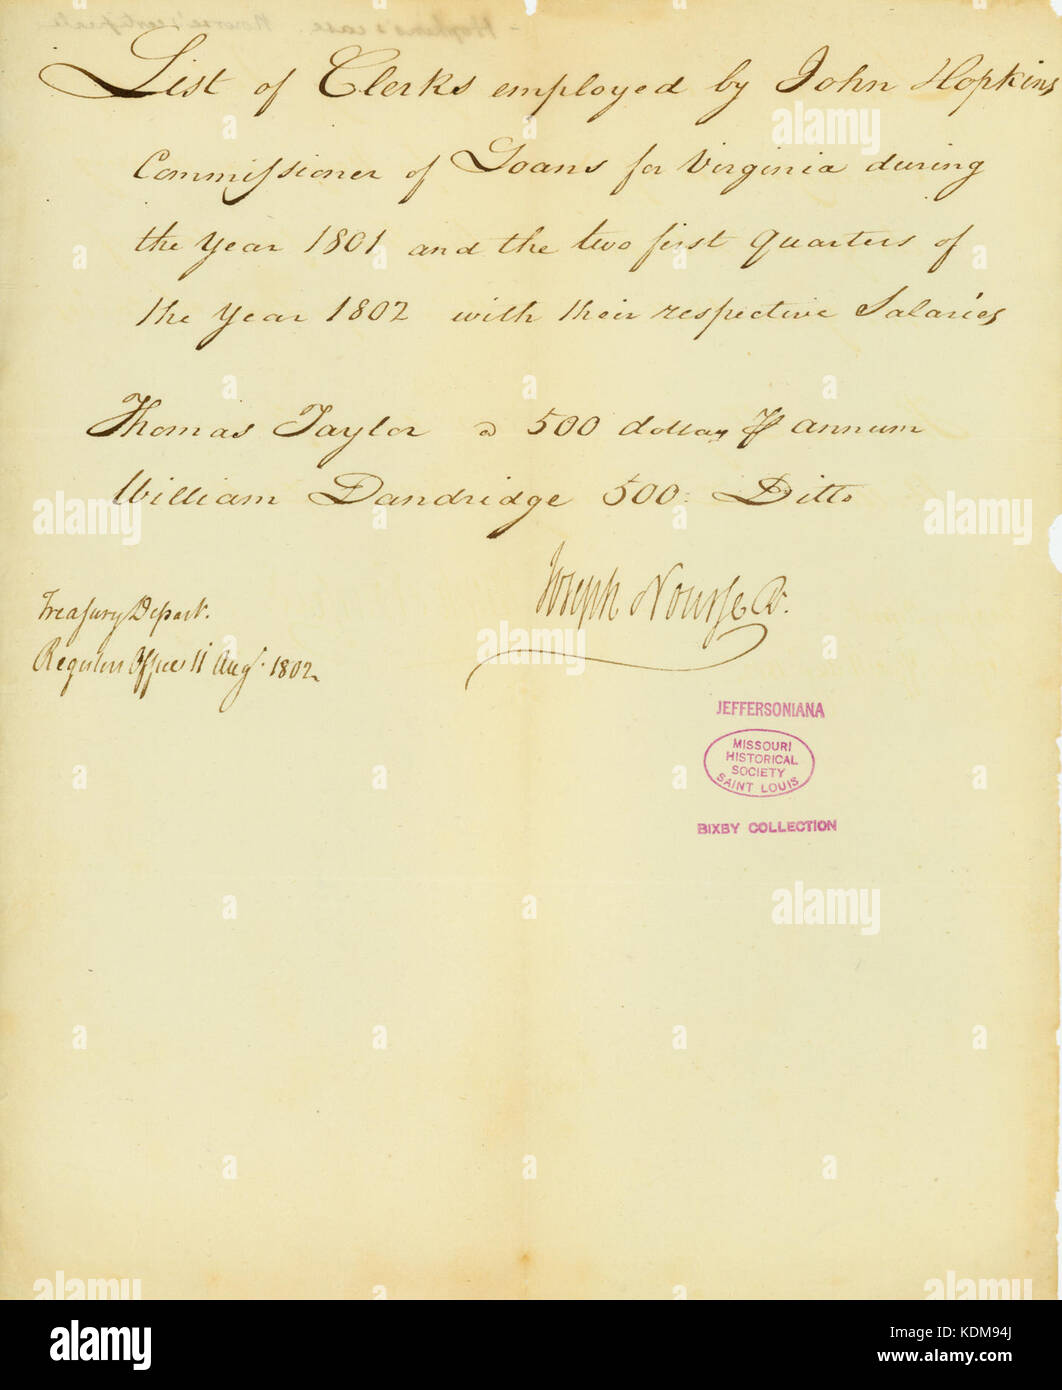 List of Clerks employed by John Hopkins
Commissioner of Loans for Virginia during
the Year 1801 and the two first quarters of
the Year 1802 with their respective Salaries
Thomas Taylor @ 500 dollars ⅌ annum
William Dandridge 500: Ditto
Joseph Nourse R.
Treasury Depart.
Registers Office 11 Augt. 1802
JEFFERSONIANA
MISSOURI
HISTORICAL
SOCIETY
SAINT LOUIS
BIXBY COLLECTION
alamy
Image ID: KDM94J
www.alamy.com